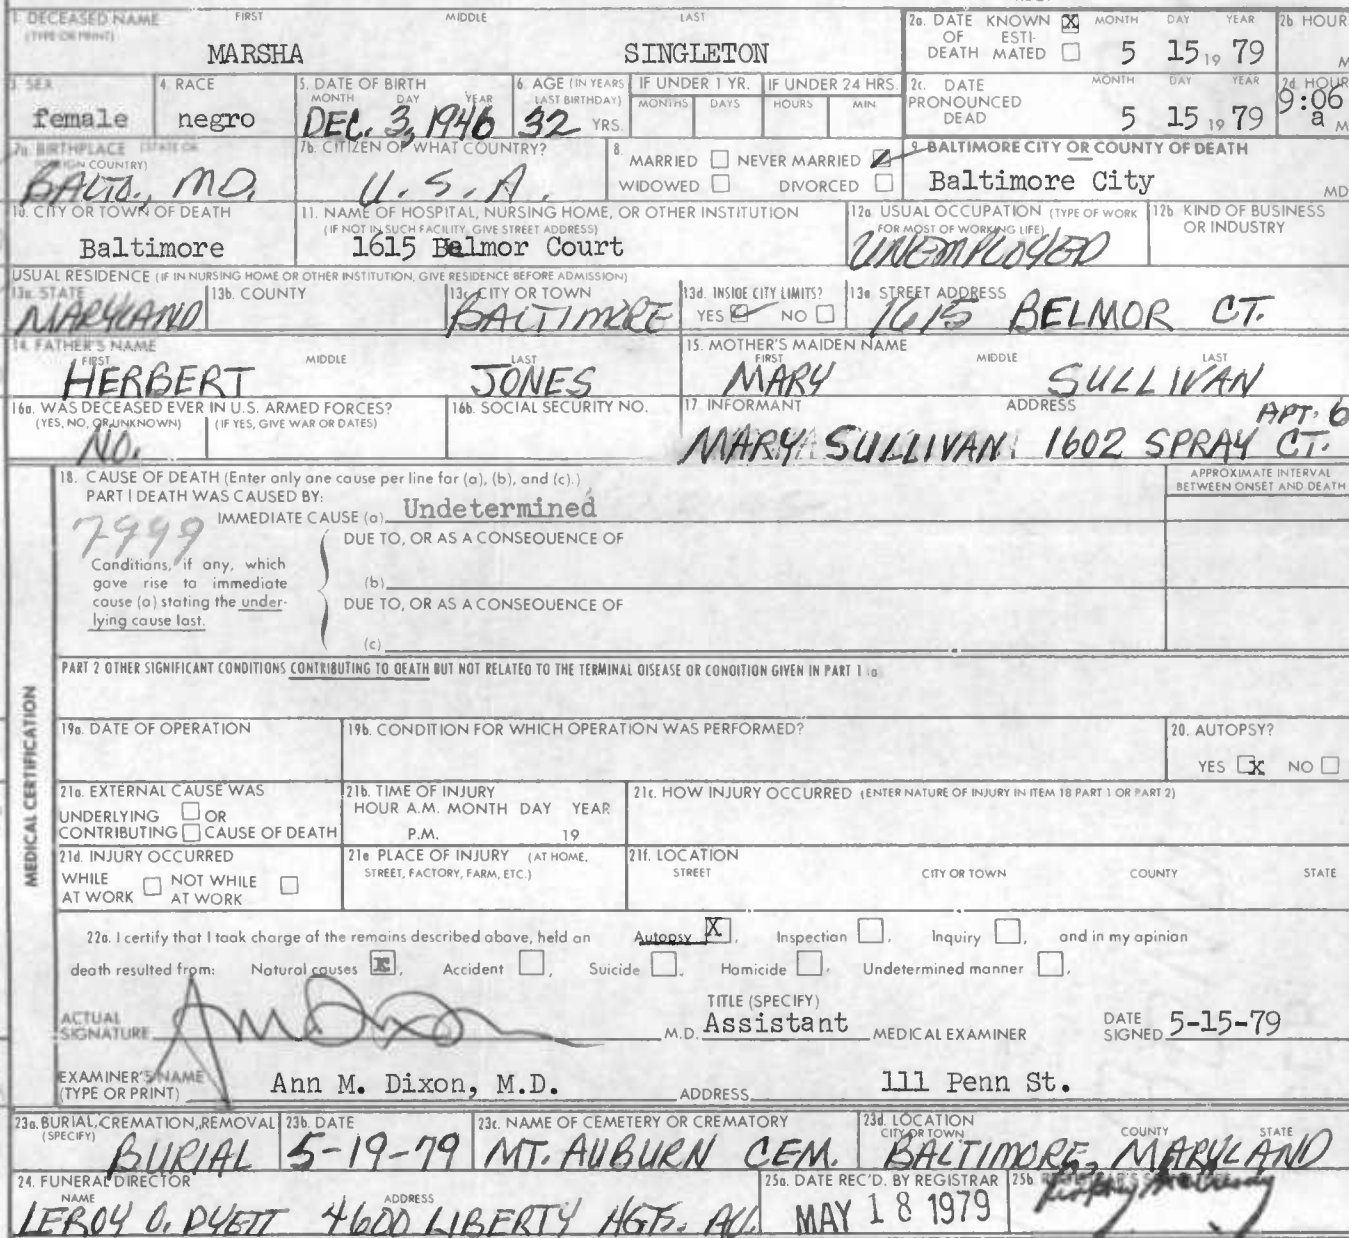 1. DECEASED NAME FIRST MIDDLE LAST
(TYPE OR PRINT)
MARSHA SINGLETON
2a. DATE OF DEATH KNOWN X ESTIMATED MONTH DAY YEAR
5 15 19 79
2b HOUR
M
3. SEX
female
4. RACE
negro
5. DATE OF BIRTH
MONTH DAY YEAR
DEC. 3, 1946
6. AGE (IN YEARS LAST BIRTHDAY)
32 YRS.
IF UNDER 1 YR.
MONTHS DAYS
IF UNDER 24 HRS.
HOURS MIN
2c. DATE PRONOUNCED DEAD MONTH DAY YEAR
5 15 19 79
2d. HOUR
9:06
a M
7a. BIRTHPLACE (STATE OR FOREIGN COUNTRY)
BALTO., MD.
7b. CITIZEN OF WHAT COUNTRY?
U.S.A.
8. MARRIED NEVER MARRIED
WIDOWED DIVORCED
9. BALTIMORE CITY OR COUNTY OF DEATH
Baltimore City MD
10. CITY OR TOWN OF DEATH
Baltimore
11. NAME OF HOSPITAL, NURSING HOME, OR OTHER INSTITUTION
(IF NOT IN SUCH FACILITY, GIVE STREET ADDRESS)
1615 Belmor Court
12a USUAL OCCUPATION (TYPE OF WORK FOR MOST OF WORKING LIFE)
UNEMPLOYED
12b KIND OF BUSINESS OR INDUSTRY
USUAL RESIDENCE (IF IN NURSING HOME OR OTHER INSTITUTION, GIVE RESIDENCE BEFORE ADMISSION)
13a. STATE
MARYLAND
13b. COUNTY
13c. CITY OR TOWN
BALTIMORE
13d. INSIDE CITY LIMITS?
YES NO
13e STREET ADDRESS
1615 BELMOR CT.
14. FATHER'S NAME
FIRST MIDDLE LAST
HERBERT JONES
15. MOTHER'S MAIDEN NAME
FIRST MIDDLE LAST
MARY SULLIVAN
16a. WAS DECEASED EVER IN U.S. ARMED FORCES?
(YES, NO, OR UNKNOWN) (IF YES, GIVE WAR OR DATES)
NO.
16b. SOCIAL SECURITY NO.
17 INFORMANT ADDRESS
APT. 6
MARY SULLIVAN 1602 SPRAY CT.
MEDICAL CERTIFICATION
18. CAUSE OF DEATH (Enter only one cause per line for (a), (b), and (c).)
PART I DEATH WAS CAUSED BY:
APPROXIMATE INTERVAL BETWEEN ONSET AND DEATH
IMMEDIATE CAUSE (a) Undetermined
7999
DUE TO, OR AS A CONSEQUENCE OF
Conditions, if any, which
gave rise to immediate (b)
cause (a) stating the under- DUE TO, OR AS A CONSEQUENCE OF
lying cause last.
(c)
PART 2 OTHER SIGNIFICANT CONDITIONS CONTRIBUTING TO DEATH BUT NOT RELATED TO THE TERMINAL DISEASE OR CONDITION GIVEN IN PART 1 (a)
19a. DATE OF OPERATION
19b. CONDITION FOR WHICH OPERATION WAS PERFORMED?
20. AUTOPSY?
YES X NO
21a. EXTERNAL CAUSE WAS
UNDERLYING OR
CONTRIBUTING CAUSE OF DEATH
21b. TIME OF INJURY
HOUR A.M. MONTH DAY YEAR
P.M. 19
21c. HOW INJURY OCCURRED (ENTER NATURE OF INJURY IN ITEM 18 PART 1 OR PART 2)
21d. INJURY OCCURRED
WHILE AT WORK NOT WHILE AT WORK
21e PLACE OF INJURY (AT HOME, STREET, FACTORY, FARM, ETC.)
21f. LOCATION
STREET CITY OR TOWN COUNTY STATE
22a. I certify that I took charge of the remains described above, held an Autopsy X, Inspection, Inquiry, and in my opinion
death resulted from: Natural causes X, Accident, Suicide, Homicide, Undetermined manner.
ACTUAL SIGNATURE M.D.
TITLE (SPECIFY)
Assistant MEDICAL EXAMINER
DATE SIGNED 5-15-79
EXAMINER'S NAME (TYPE OR PRINT) Ann M. Dixon, M.D. ADDRESS 111 Penn St.
23a. BURIAL, CREMATION, REMOVAL (SPECIFY)
BURIAL
23b. DATE
5-19-79
23c. NAME OF CEMETERY OR CREMATORY
MT. AUBURN CEM.
23d. LOCATION
CITY OR TOWN COUNTY STATE
BALTIMORE, MARYLAND
24. FUNERAL DIRECTOR
NAME ADDRESS
LEROY O. DYETT 4600 LIBERTY HGTS. AV.
25a. DATE REC'D. BY REGISTRAR
MAY 18 1979
25b